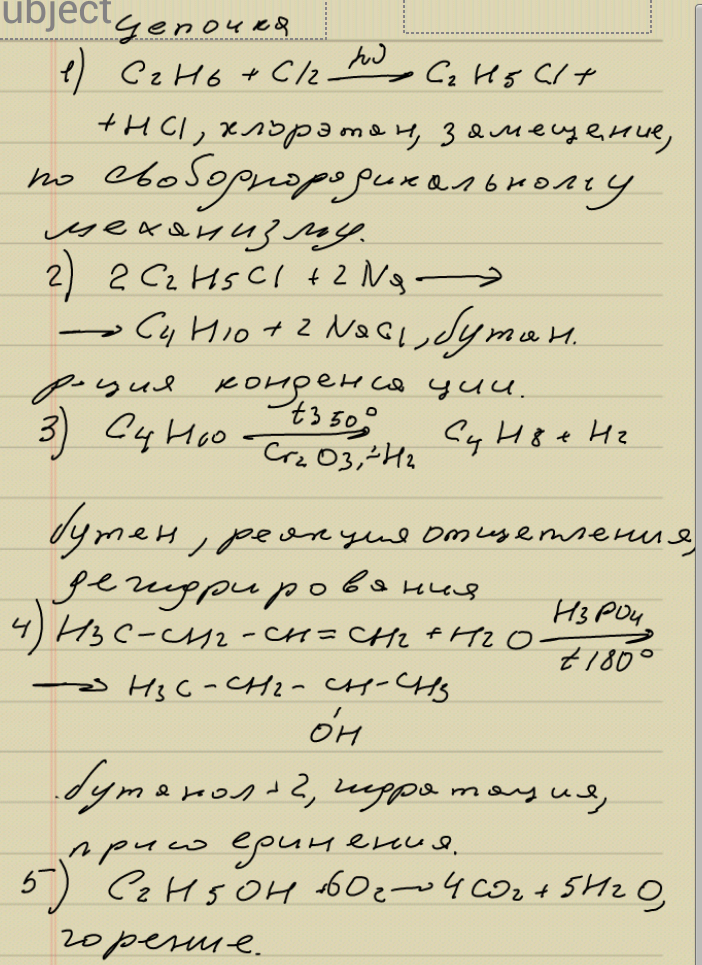 ubject
Цепочка
1) C2H6 + Cl2 hν→ C2H5Cl +
+ HCl, хлорэтан, замещение,
по свободнорадикальному
механизму.
2) 2C2H5Cl + 2Na →
→ C4H10 + 2NaCl, бутан.
р-ция конденсации.
3) C4H10 t350° → Cr2O3, -H2 C4H8 + H2
бутен, реакция отщепления,
дегидрирования
4) H3C-CH2-CH=CH2 + H2O H3PO4 → t180°
→ H3C-CH2-CH-CH3
OH
бутанол-2, гидратация,
присоединения.
5) C2H5OH +6O2 → 4CO2 + 5H2O,
горение.